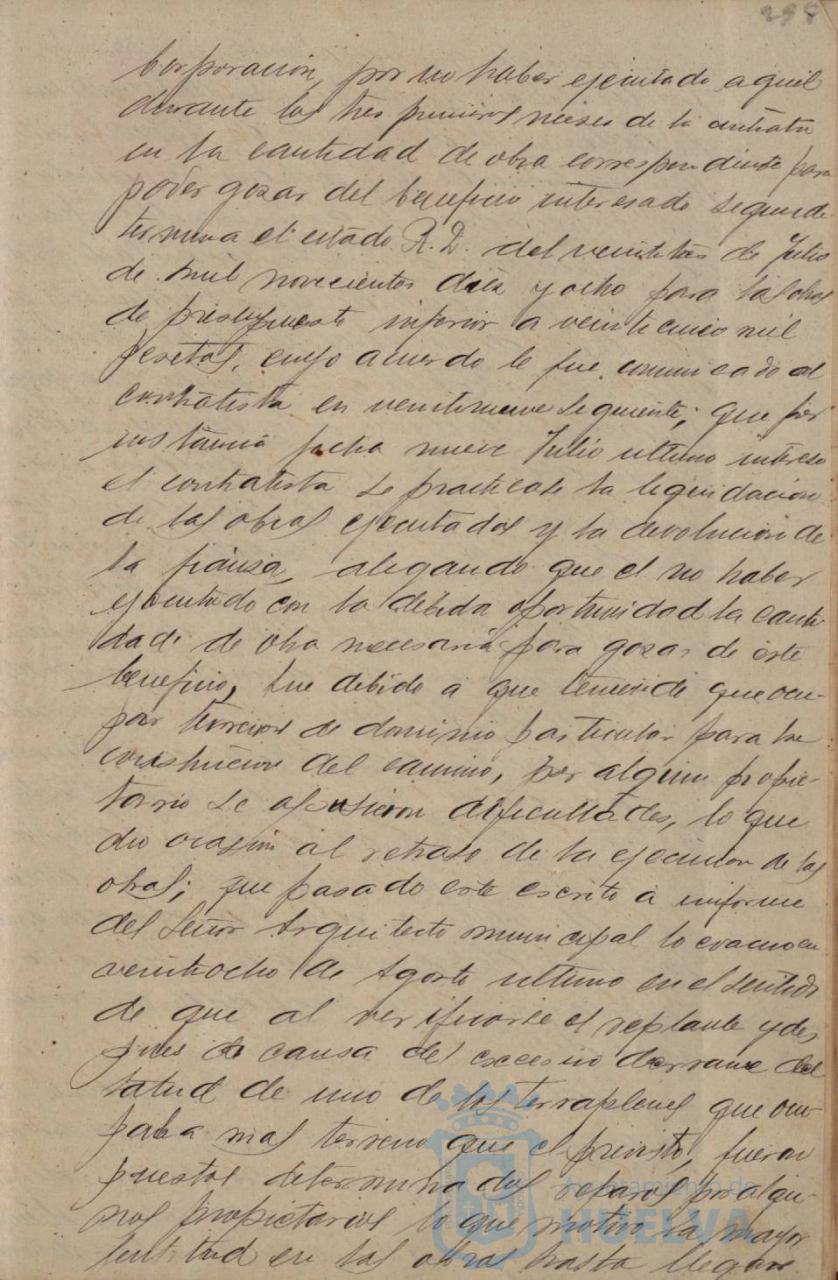 298
Corporación, por no haber ejecutado aquel
durante los tres primeros meses de la contrata
en la cantidad de obra correspondiente para
poder gozar del beneficio interesado según de-
termina el citado R.D. del veintitres de Julio
de mil novecientos diez y ocho para las obras
de presupuesto inferior a veinticinco mil
pesetas, cuyo acuerdo le fue comunicado al
contratista en veintinueve siguiente; que por
instancia fecha nueve Julio ultimo intereso
el contratista se practicase la liquidación
de las obras ejecutadas y la devolucion de
la fianza, alegando que el no haber
ejecutado con la debida oportunidad la canti-
dad de obra necesaria para gozar de este
beneficio, fue debido a que teniendo que ocu-
par terrenos de dominio particular para la
construccion del camino, por algun propie-
tario se opusieron dificultades, lo que
dio ocasión al retraso de la ejecucion de las
obras; que pasado este escrito a informe
del Señor Arquitecto municipal lo evacuo en
veintiocho de Agosto ultimo en el sentido
de que al verificarse el replanteo y des
pues a causa del excesivo derrame del
talud de uno de los terraplenes que ocu-
paba mas terreno que el previsto, fueron
puestos determinados reparos por algu-
nos propietarios lo que motivo la mayor
lentitud en las obras hasta llegar
Ayuntamiento de
HUELVA